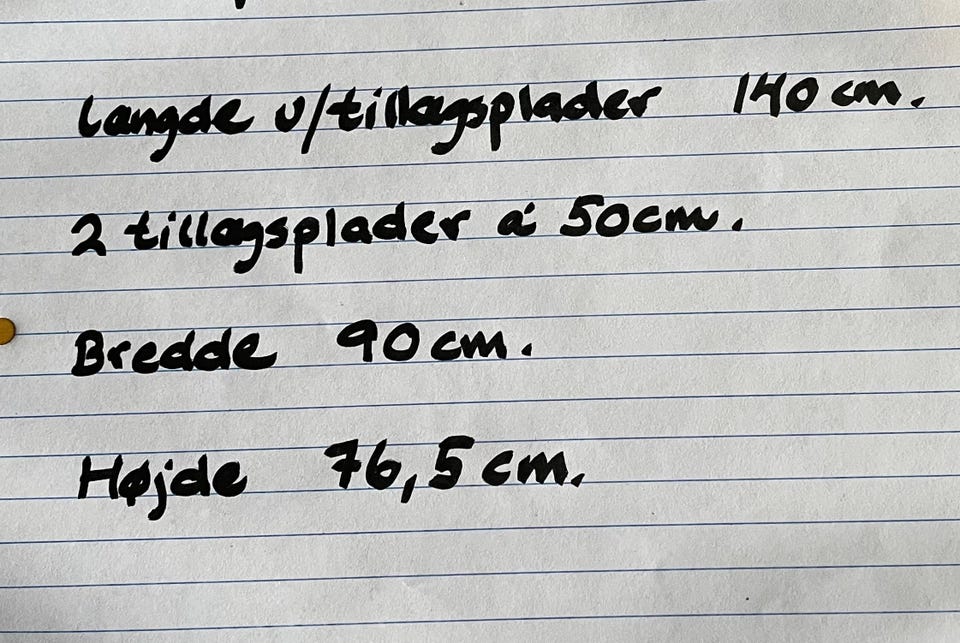 Længde u/tillægsplader 140 cm.
2 tillægsplader á 50 cm.
Bredde 90 cm.
Højde 76,5 cm.